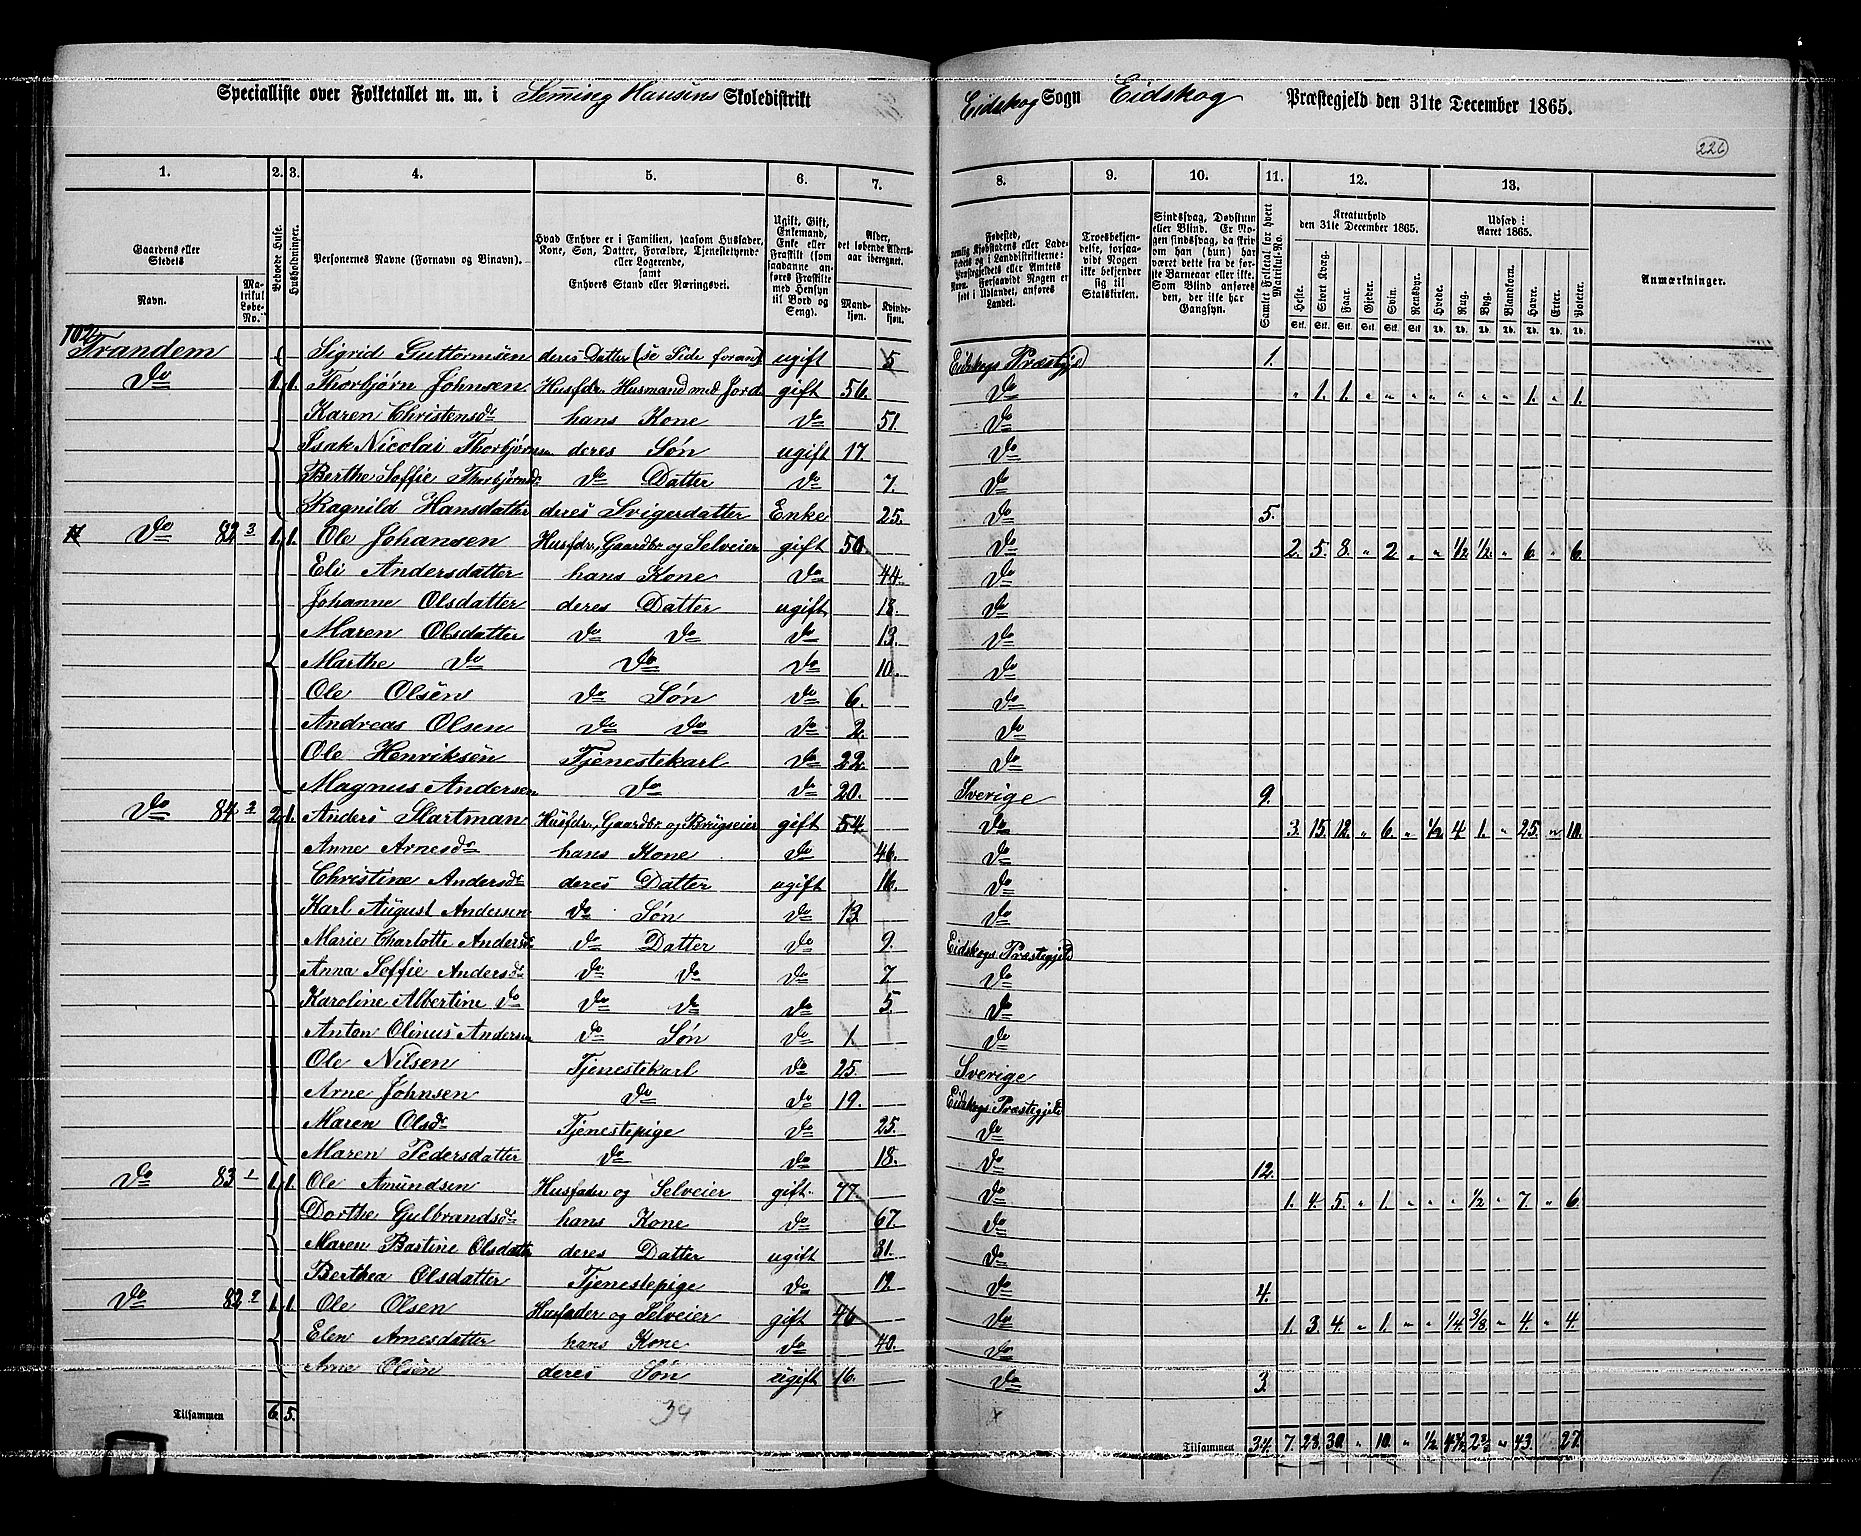 Specialliste over Folketallet m. m. i Skoledistrikt Eidskog Sogn Eidskog Præstegjeld den 31te December 1865.
226
1. 2. 3. 4. 5. 6. 7. 8. 9. 10. 11. 12. 13.
Gaardens eller Stedets
Navn.
Matrikul Løbe-No.
Beboede Huse.
Husholdninger.
Personernes Navne (Fornavn og Binavn).
Hvad Enhver er i Familien, saasom Husfader, Kone, Søn, Datter, Forældre, Tjenestetyende eller Logerende, samt Enhvers Stand eller Næringsvei.
Ugift, Gift, Enkemand, Enke eller Fraskilt (som saadanne anføres Fraskilte med Hensyn til Bord og Seng).
Alder, det løbende Aldersaar iberegnet.
Mandkjøn. Kvindekjøn.
Fødested, nemlig Kjøbstadens eller Ladestedets og i Landdistrikterne: Præstegjeldets eller Amtets Navn. Forsaavidt Nogen er født i Udlandet, anføres Landet.
Troesbekjendelse, forsaavidt Nogen ikke bekjender sig til Statskirken.
Sindssvag, Døvstum eller Blind. Er Nogen sindssvag, da skrives om han (hun) har været det fra de første Barneaar eller ikke. Som Blind anføres den, der ikke har Gangsyn.
Samlet Folketal for hvert Matrikul-No.
Kreaturhold den 31te December 1865.
Heste. Stort Kvæg. Faar. Gjeder. Svin. Rensdyr.
Udsæd i Aaret 1865.
Hvede. Rug. Byg. Blandkorn. Havre. Erter. Poteter.
Anmærkninger.
102
Trandem Sigrid Guttormsen deres Datter (se Side foran) ugift 5 Eidskogs Præstegjd 1.
Do 1. 1. Thorbjørn Johnsen Husfdr. Husmand med Jord gift 56. Do " 1. 1. " " " " " " " 1. " 1.
Karen Christensdr hans Kone Do 51. Do
Isak Nicolai Thorbjørnsen deres Søn ugift 17. Do
Berthe Soffie Thorbjørnsdr Do Datter Do 7. Do
Ragnild Hansdatter deres Svigerdatter Enke 25. Do 5.
Do 82 3 1. 1. Ole Johansen Husfdr., Gaardbr og Selveier gift 50. Do 2. 5. 8. " 2. " " 1/2 1/2 " 6. " 6.
Eli Andersdatter hans Kone Do 44. Do
Johanne Olsdatter deres Datter ugift 18. Do
Maren Olsdatter Do Do Do 13. Do
Marthe Do Do Do 10. Do
Ole Olsen Do Søn Do 6. Do
Andreas Olsen Do Do Do 2. Do
Ole Henriksen Tjenestekarl Do 22. Do
Magnus Andersen Do Do 20. Sverige 9.
Do 84 2 2. 1. Anders Slartman Husfdr., Gaardbr og Brugseier gift 54. Do 3. 15. 12. " 6. " 1/2 4 1. " 25. " 10.
Anne Arnesdr hans Kone Do 46. Do
Christine Andersdr deres Datter ugift 16. Do
Karl August Andersen Do Søn Do 13. Do
Marie Charlotte Andersdr Do Datter Do 9. Eidskogs Præstegjeld
Anna Soffie Andersdr Do Do Do 7. Do
Karoline Albertine Do Do Do Do 5. Do
Anton Olinus Andersen Do Søn Do 1. Do
Ole Nilsen Tjenestekarl Do 25. Sverige
Arne Johnsen Do Do 19. Eidskogs Præstegjeld
Maren Olsdr Tjenestepige Do 25. Do
Maren Pedersdatter Do Do 18. Do 12.
Do 83 1 1. 1. Ole Amundsen Husfader og Selveier gift. 77. Do 1. 4. 5. " 1. " " " 1/2 " 7. " 6.
Dorthe Gulbrandsdr hans Kone Do 67. Do
Maren Bastine Olsdatter deres Datter ugift 31. Do
Berthea Olsdatter Tjenestepige Do 19. Do 4.
Do 82 2 1. 1. Ole Olsen Husfader og Selveier gift 46 Do 1. 3. 4. " 1. " " 1/4 3/8 " 4. " 4.
Elen Arnesdatter hans Kone Do 40. Do
Arne Olsen deres Søn ugift 16. Do 3.
Tilsammen 6. 5. 34 Tilsammen 34. 7. 28. 30. " 10. " 1/2 " 43. 27.